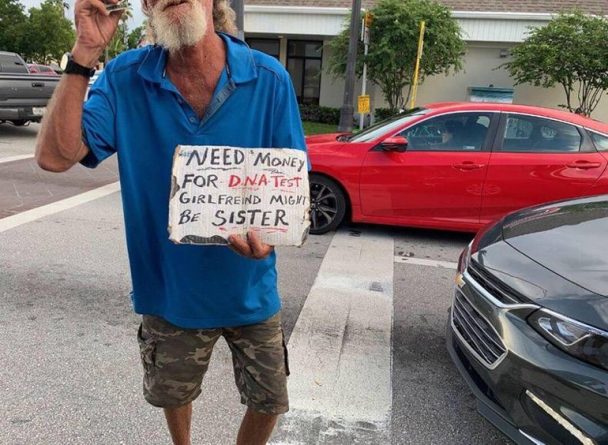 NEED MONEY
FOR D.N.A TEST
GIRLFREIND MIGHT
BE SISTER